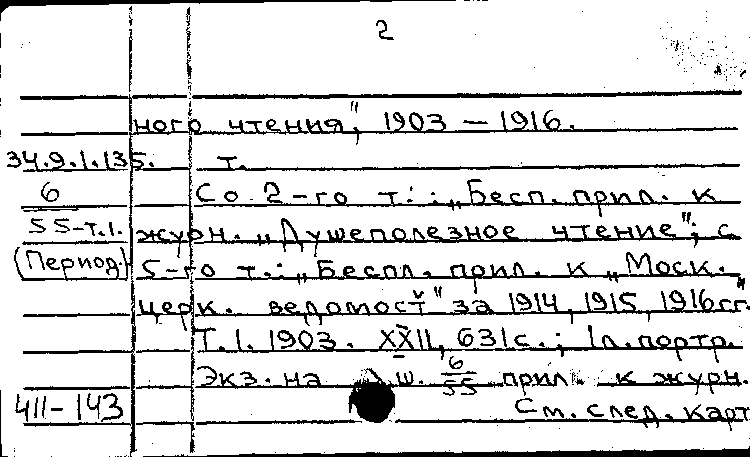 2
ного чтения", 1903 – 1916.
34.9.1.135. т.
6 Со 2-го т.: „Бесп. прил. к
55-т.1. журн. „Душеполезное чтение"; с
(Период.) 5-го т.: „Беспл. прил. к „Моск.
церк. ведомост" за 1914, 1915, 1916 гг."
Т.1. 1903. XXII, 631 с.; 1 л. портр.
Экз. на ш. 6/55 прил. к журн.
411-143 См. след. карт